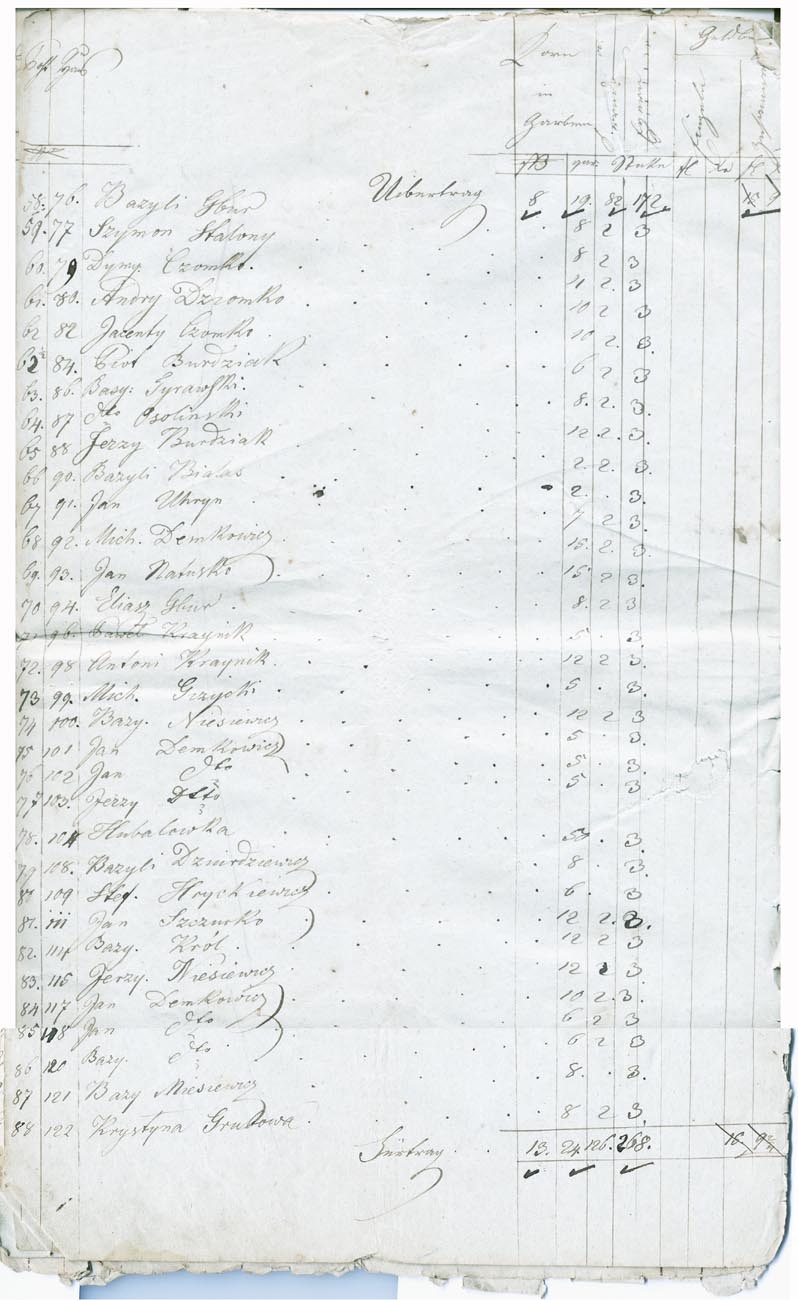 Post Haus
Korn in Garben
Geldbe
fl x fl
ß gar Stuke
Uibertrag 8 19. 82 172.
58. 76. Bazyli Gbur 8 2 3
59. 77 Szymon Stalony 8 2 3
60. 79 Dymy. Czomko. 11 2 3
61. 80. Andry Dziomko 10 2 3
62 82 Jacenty Czomko 10 2. 3.
62½ 84. Piot Burdziak 6 2 3
63. 86. Basy: Tyrawski. 8. 2. 3.
64. 87 dto Osolinski 12 2. 3.
65 88 Jerzy Burdziak 2. 2. 3.
66 90. Bazyli Bialas 2. . 3.
67 91. Jan Uhryn 7 2 3.
68 92. Mich. Demkowicz 15. 2. 3.
69. 93. Jan Natusko 15 2 3.
70 94. Eliasz Gbur 8. 2 3
71 96. Pawel Kraynik 5. . 3.
72. 98 Antoni Kraynik. 12 2 3.
73 99. Mich. Gizycki 5 . 3.
74 100. Bazy. Niesiewicz 12 2 3
75 101 Jan Demkowicz 5 . 3.
76 102 Jan dto 5. . 3.
77 103. Jerzy dto 5 . 3
78. 104 Hubalowka 53. . 3
79 108. Bazyli Dzwirdziewicz 8 . 3.
80 109 Stef. Hryckiewicz 6 . 3
81. 111 Jan Szczurko 12 2. 3.
82. 114 Bazy. Król 12 2 3
83. 115 Jerzy. Niesiewicz 12 2 3
84 117 Jan Demkowicz 10 2. 3.
85 118 Jan dto 6 2 3
86 120 Bazy. dto 6 2 3
87 121 Bazy Miesiewicz 8. . 3.
88 122 Krystyna Grubowa 8 2 3.
Fürtrag 13. 24. 126. 268. 16. 9 2/4